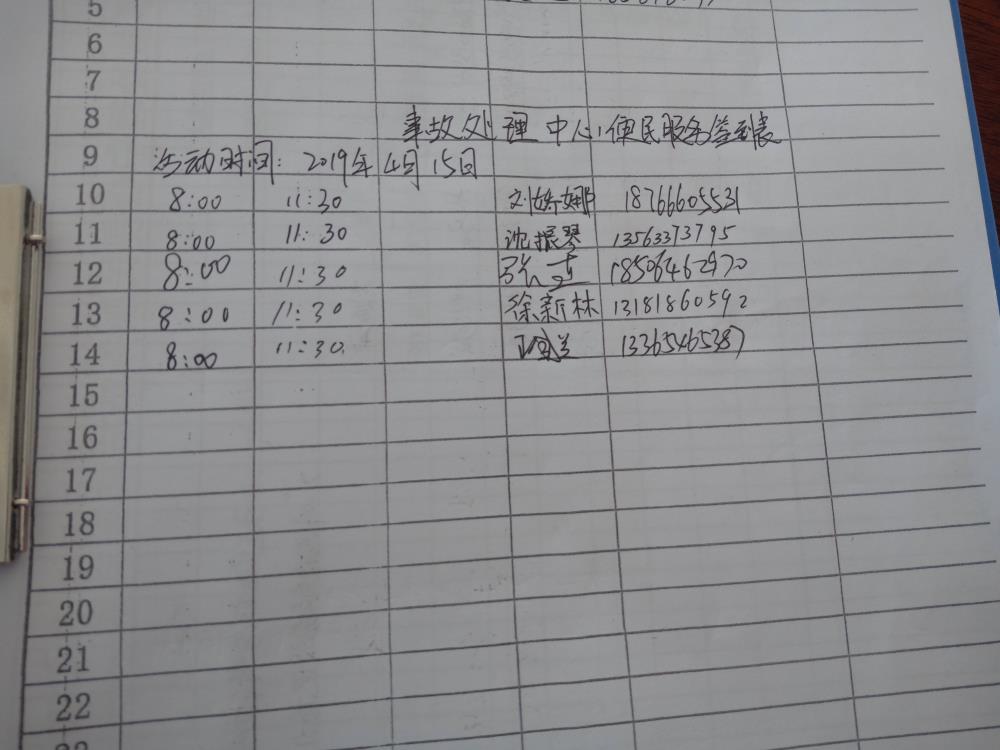 5
6
7
8 事故处理中心便民服务签到表
9 活动时间: 2019年4月15日
10 8:00 11:30 刘娇娜 18766605531
11 8:00 11:30 沈振琴 13563373795
12 8:00 11:30 18506462970
13 8:00 11:30 徐新林 13181860592
14 8:00 11:30 13365465387
15
16
17
18
19
20
21
22